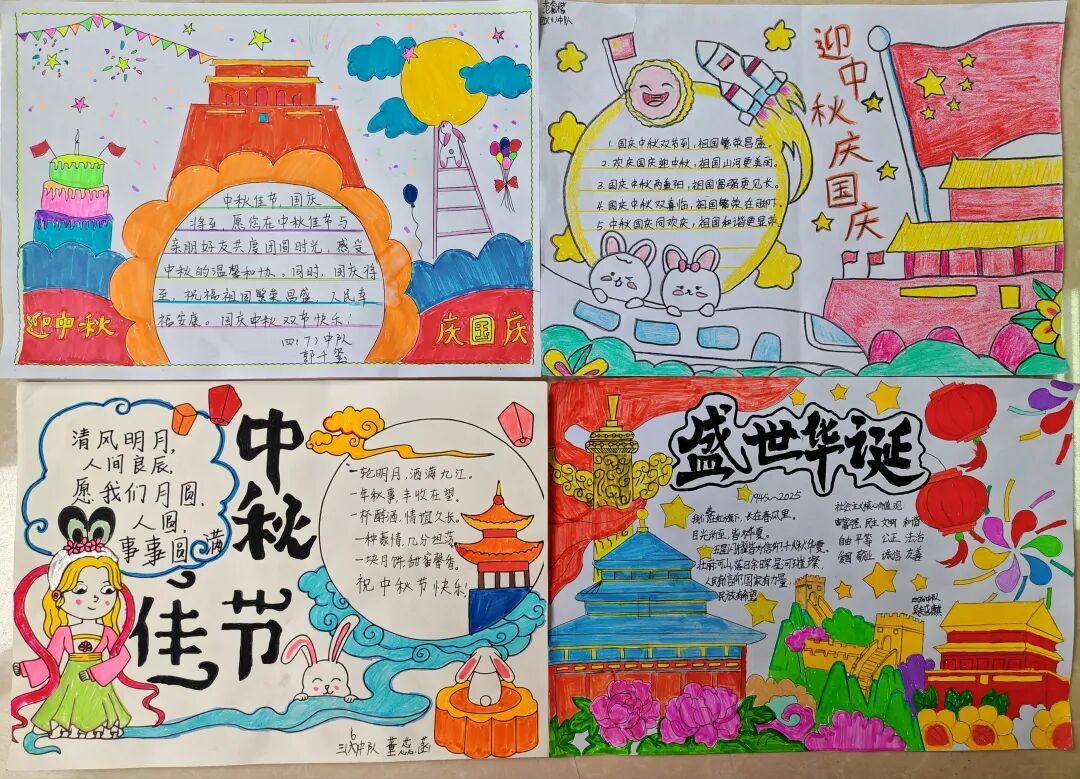 中秋佳节,国庆
将至,愿您在中秋佳节与
亲朋好友共度团圆时光,感受
中秋的温馨和协。同时,国庆将
至,祝福祖国繁荣昌盛,人民幸
福安康。国庆中秋双节快乐!
四(7)中队
迎中秋
庆国庆
迎中秋庆国庆
1.国庆中秋双节到,祖国繁荣昌盛。
2.欢庆国庆迎中秋,祖国山河更美丽。
3.国庆中秋两重阳,祖国富强更见长。
4.国庆中秋双喜临,祖国繁荣在眼前。
5.中秋国庆同欢庆,祖国和谐更显荣。
清风明月,
人间良辰,
愿我们月圆,
人圆,
事事圆满
中秋
佳节
一轮明月,洒满九江。
一年秋裏,丰收在望。
一杯醇酒,情谊久长。
一种豪情,几分坦荡。
一块月饼,甜蜜馨香。
祝中秋节快乐!
三(6)中队 董忠菡
盛世华诞
1945~2025
我们在红旗下,长在春风里。
目光所至,皆为华夏。
五星闪耀皆为信仰
人民有信仰国家有力量,
民族有希望
社会主义核心价值观
富强 民主 文明 和谐
自由 平等 公正 法治
爱国 敬业 诚信 友善